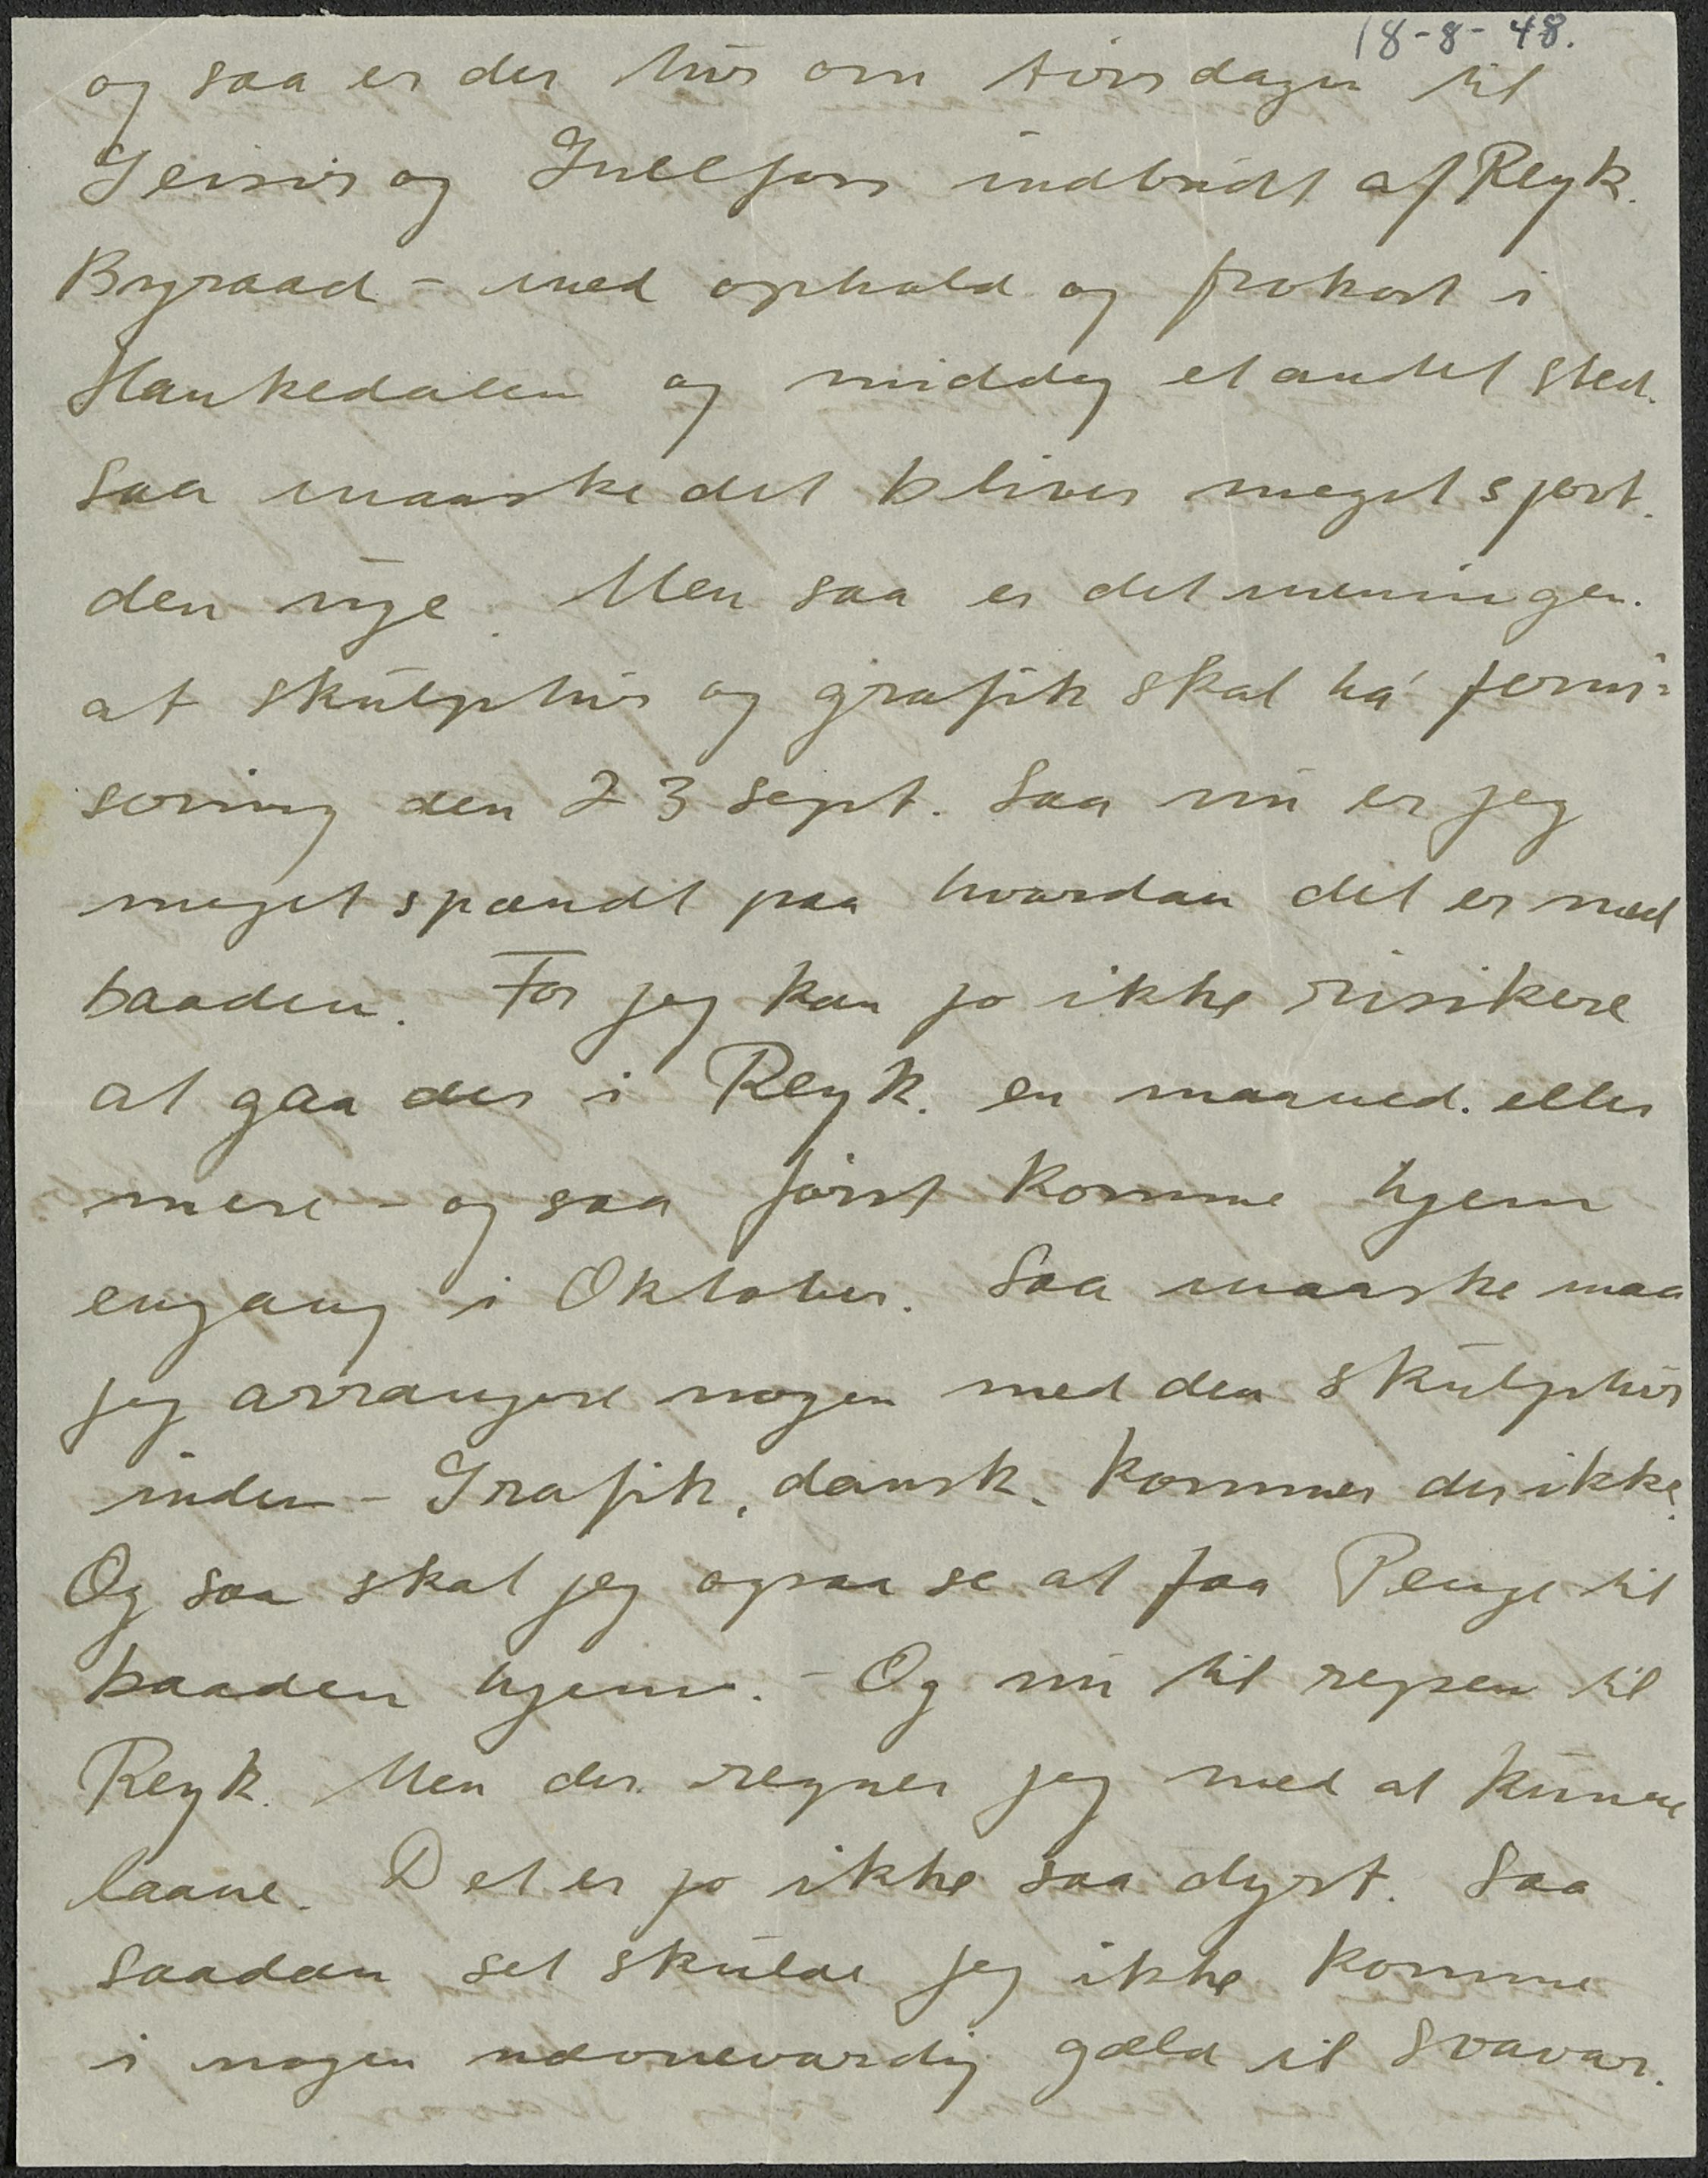 18-8-48.
og saa er der tur om torsdagen til
Geisir og Gullfoss indbudt af Reyk.
Byraad - med ophold og frokost i
Haukedalen og middag et andet sted.
Saa maaske det bliver meget sjovt.
den uge. Men saa er det meningen.
at skulptur og grafik skal ha' ferni=
sering den 23 sept. Saa nu er jeg
meget spændt paa hvordan det er med
baaden. For jeg kan jo ikke risikere
at gaa der i Reyk. en maaned. eller
mere - og saa først komme hjem
engang i Oktober. Saa maaske maa
jeg arrangere nogen med den skulptur
inden - Grafik, dansk, kommer der ikke.
Og saa skal jeg ogsaa se at faa Penge til
baaden hjem. - Og nu til rejsen til
Reyk. Men der regner jeg med at kunne
laane. Det er jo ikke saa dyrt. Saa
saadan set skulde jeg ikke komme
i nogen nævneværdig gæld til Svavar.